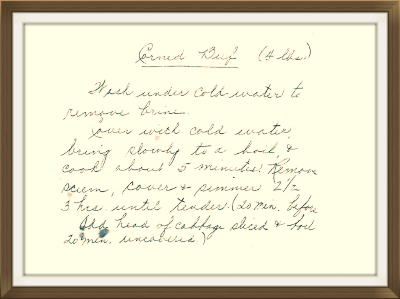 Corned Beef (4 lbs.)
Wash under cold water to
remove brine.
Cover with cold water,
bring slowly to a boil &
cook about 5 minutes. Remove
scum, cover & simmer 2 1/2
3 hrs. until tender. (20 min. before
Add head of cabbage sliced & boil
20 min. uncovered)